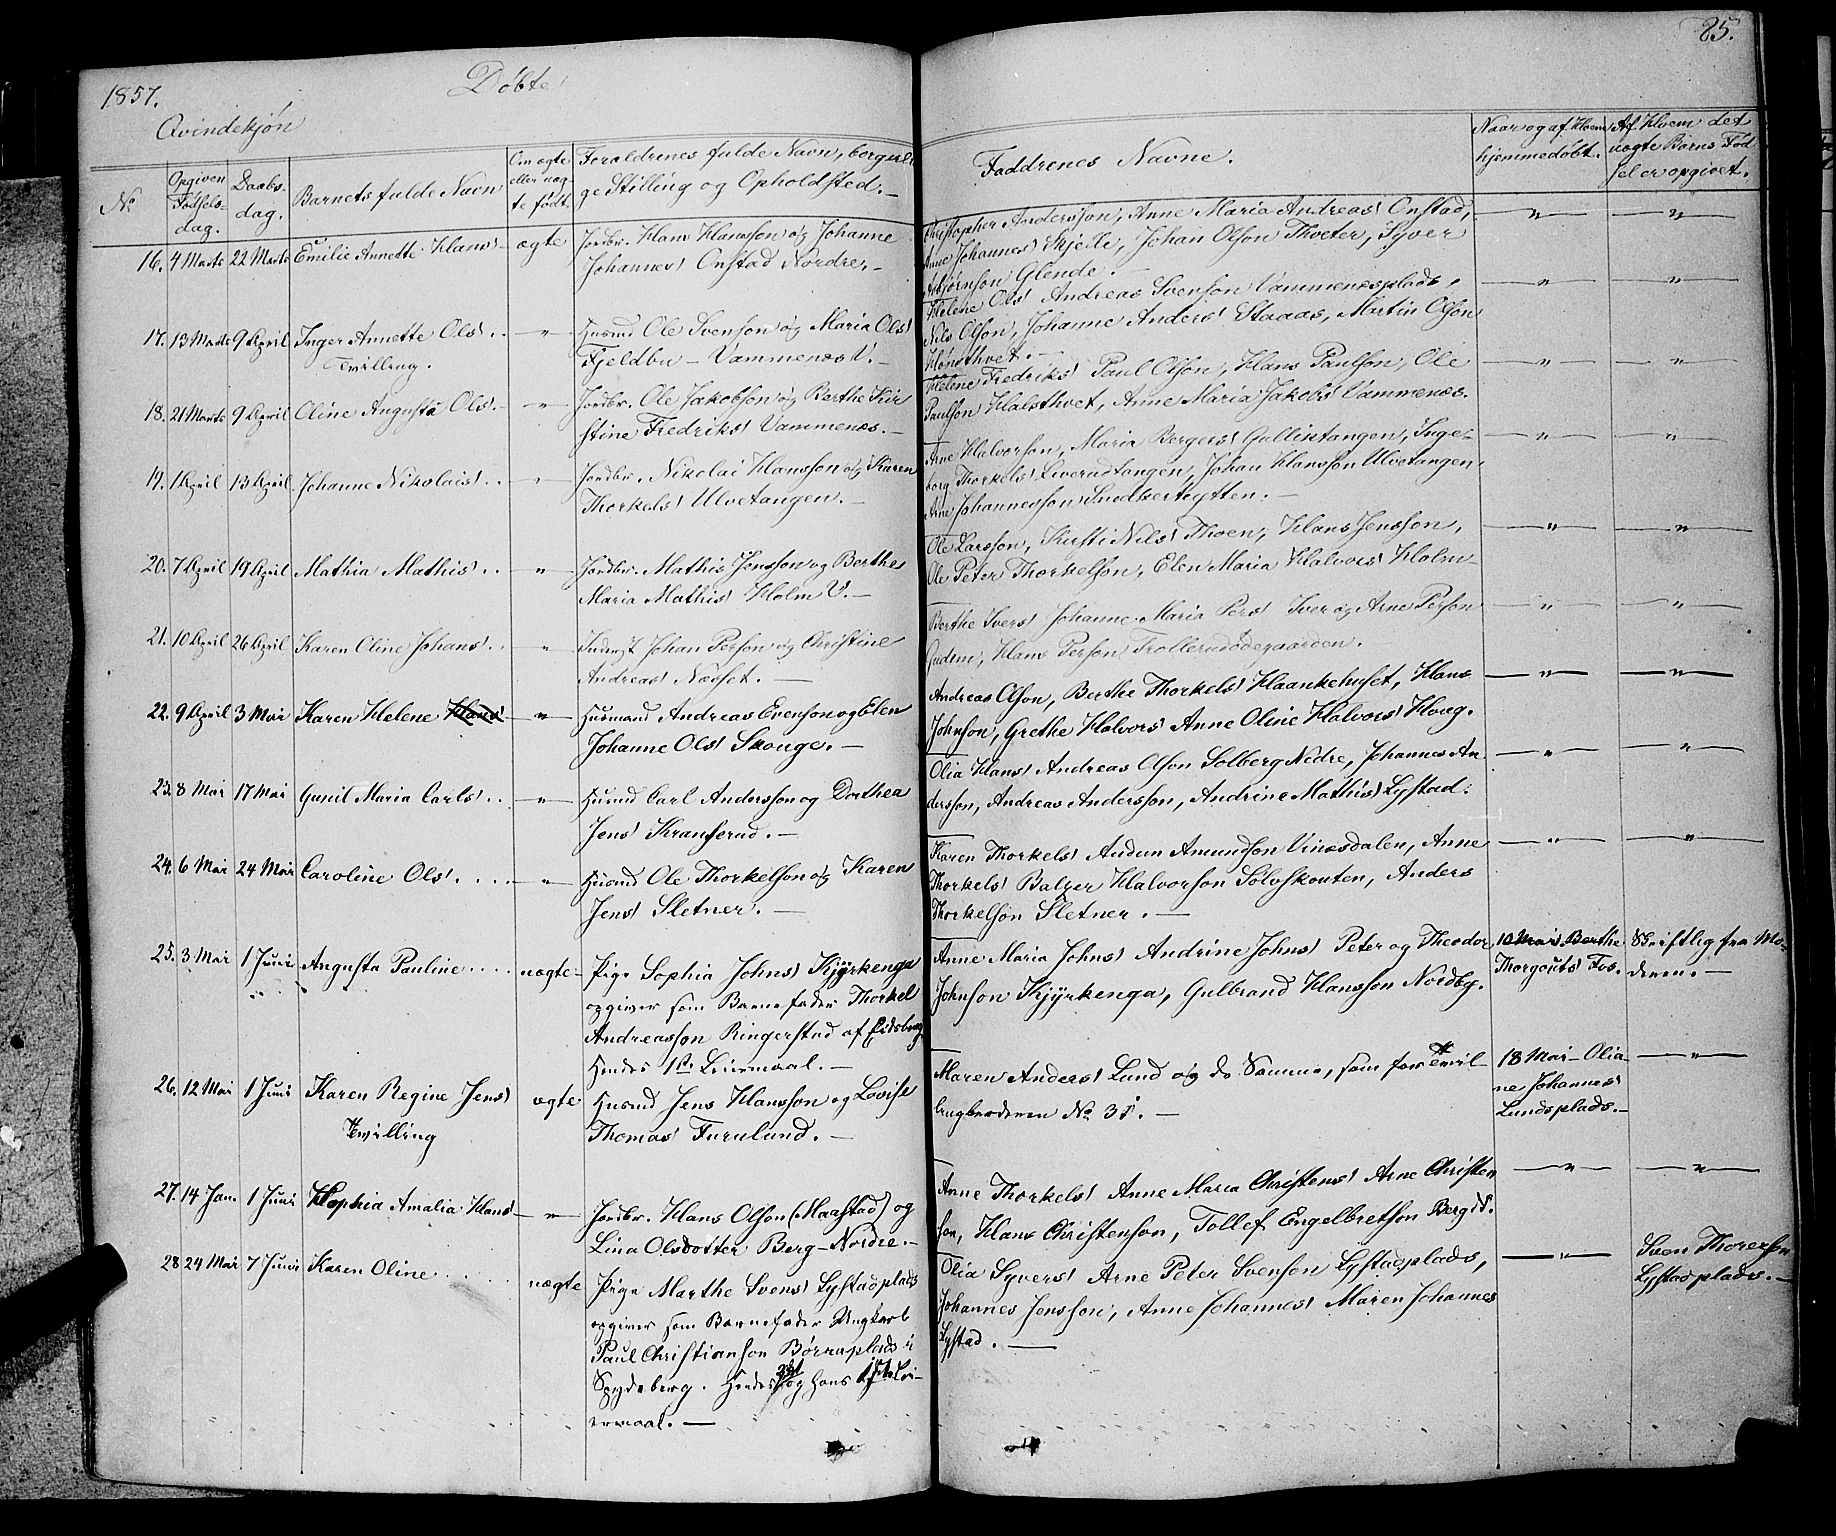 1857.
Döbte
85.
Qvindekjøn
No
Opgiven Fødsels-dag.
Daabs-dag.
Barnets fulde Navn
Om ægte eller uæg-te født.
Forældrenes fulde Navn, borgerli-
ge Stilling og Opholdsted.—
Faddrenes Navne.
Naar og af Hvem
hjemmedøbt.
Af Hvem det
uægte Barns Fød
sel er opgivet.
16. 4 Marts 22 Marts Emilie Annette Hans! ægte Jordbr. Hans Hansson og Johanne
Johannes! Onstad Nordre.—
Christopher Andersson, Anne Maria Andreas! Onstad,
Anne Johannes! Skjelle, Johan Olson Thveter, Syver
Asbjørnson Glende.—
17. 13 Marts 9 April Inger Annette Ols! . . " Husmd Ole Svenson og Maria Ols!
Tvilling.
Fjeldbu – Vammenæs V.—
Helene Ols! Andreas Svenson Vammenæsplads,
Nils Olson, Johanne Anders! Staaas, Martin Olson
Hønsthvet.—
18. 21 Marts 9 April Oline Augusta Ols! . " Jordbr. Ole Jakobson og Berthe Kir
stine Fredriks! Vammenæs.—
Helene Fredriks! Paul Olson, Hans Paulson, Ole
Paulson Halsthvet, Anne Maria Jakobs! Vammenæs.
19. 1 April 13 April Johanne Nikolais! . . " Jordbr. Nikolai Hansson og Karen
Thorkels! Ulvetangen.—
Arne Halvorson, Maria Bergers! Gullixtangen, Inge-
borg Thorkels! Liverudtangen, Johan Hansson Ulvetangen
Arne Johannesson Snedkerhytten.—
20. 7 April 19 April Mathia Mathis! . . " Jordbr. Mathis Jensson og Berthe
Maria Mathis! Holm V.—
Ole Larsson, Kirsti Nils! Thoen, Hans Jensson,
Ole Peter Thorkelson, Elen Maria Halvors! Holm—
21. 10 April 26 April Karen Oline Johans! . . " Inderst Johan Person og Christine
Andreas! Næsset.—
Berthe Ivers! Johanne Maria Pers! Iver og Arne Person
Gudem, Hans Person Trollerudødegaarden.
22. 9 April 3 Mai Karen Helene Hans! " Husmand Andreas Evenson og Elen
Johanne Ols! Skouge.—
Andreas Olson, Berthe Thorkels! Haankehuset, Hans
Johnson, Grethe Halvors! Anne Oline Halvors! Houg.
23. 8 Mai 17 Mai Gunil Maria Carls! . . " Husmd Carl Andersson og Dorthea
Jens! Kranserud.—
Olia Hans! Andreas Olson Solberg Nedre, Johannes An
dersson, Andreas Andersson, Andrine Mathis! Lystad.
24. 6 Mai 24 Mai Caroline Ols! . . . . " Husmd Ole Thorkelson og Karen
Jens! Sletner.—
Karen Thorkels! Audun Amundson Vinæsdalen, Anne
Thorkels! Balzer Halvorson Sølvskouten, Anders
Thorkelson Sletner.—
25. 3 Mai 1 Juni Augusta Pauline . . . . uægte Pige Sophia Johns! Kjyrkenga
opgiver som Barnefader Thorkel
Andreasson Ringerstad af Eidsberg
Hendes 1ste Leiermaal.—
Anne Maria Johns! Andrine Johns! Peter og Theodor
Johnson Kjyrkenga, Gulbrand Hansson Nordby.
10 Mai Berthe
Thorgouts! Fos.
Skriftlig fra Mo-
deren.—
26. 12 Mai 1 Juni Karen Regine Jens! ægte Husmd Jens Hansson og Lovise
Tvilling
Thomas! Furulund.—
Maren Anders! Lund og do Samme, som for Tvil-
lingbroderen No 31.—
18 Mai – Olia-
ne Johannes!
Lundsplads.—
27. 14 Jan. 1 Juni Sophia Amalia Hans! " Jordbr. Hans Olson (Maastad) og
Lina Olsdotter Berg – Nordre.—
Anne Thorkels! Anne Maria Christens! Arne Christen
son, Hans Christenson, Tollef Engelbretson Berg
28 24 Mai 7 Juni Karen Oline . . . . . uægte Pige Marthe Svens! Lystadplads
opgiver som Barnefader Ungkarl
Paul Christianson Børraplads i
Spydeberg. Hendes 2det og hans 1ste Lei-
ermaal.—
Olia Syvers! Arne Peter Svenson Lystadplads,
Johannes Jensson, Anne Johannes! Maren Johannes
Lystad.—
Sven Thorerson
Lystadplads.—